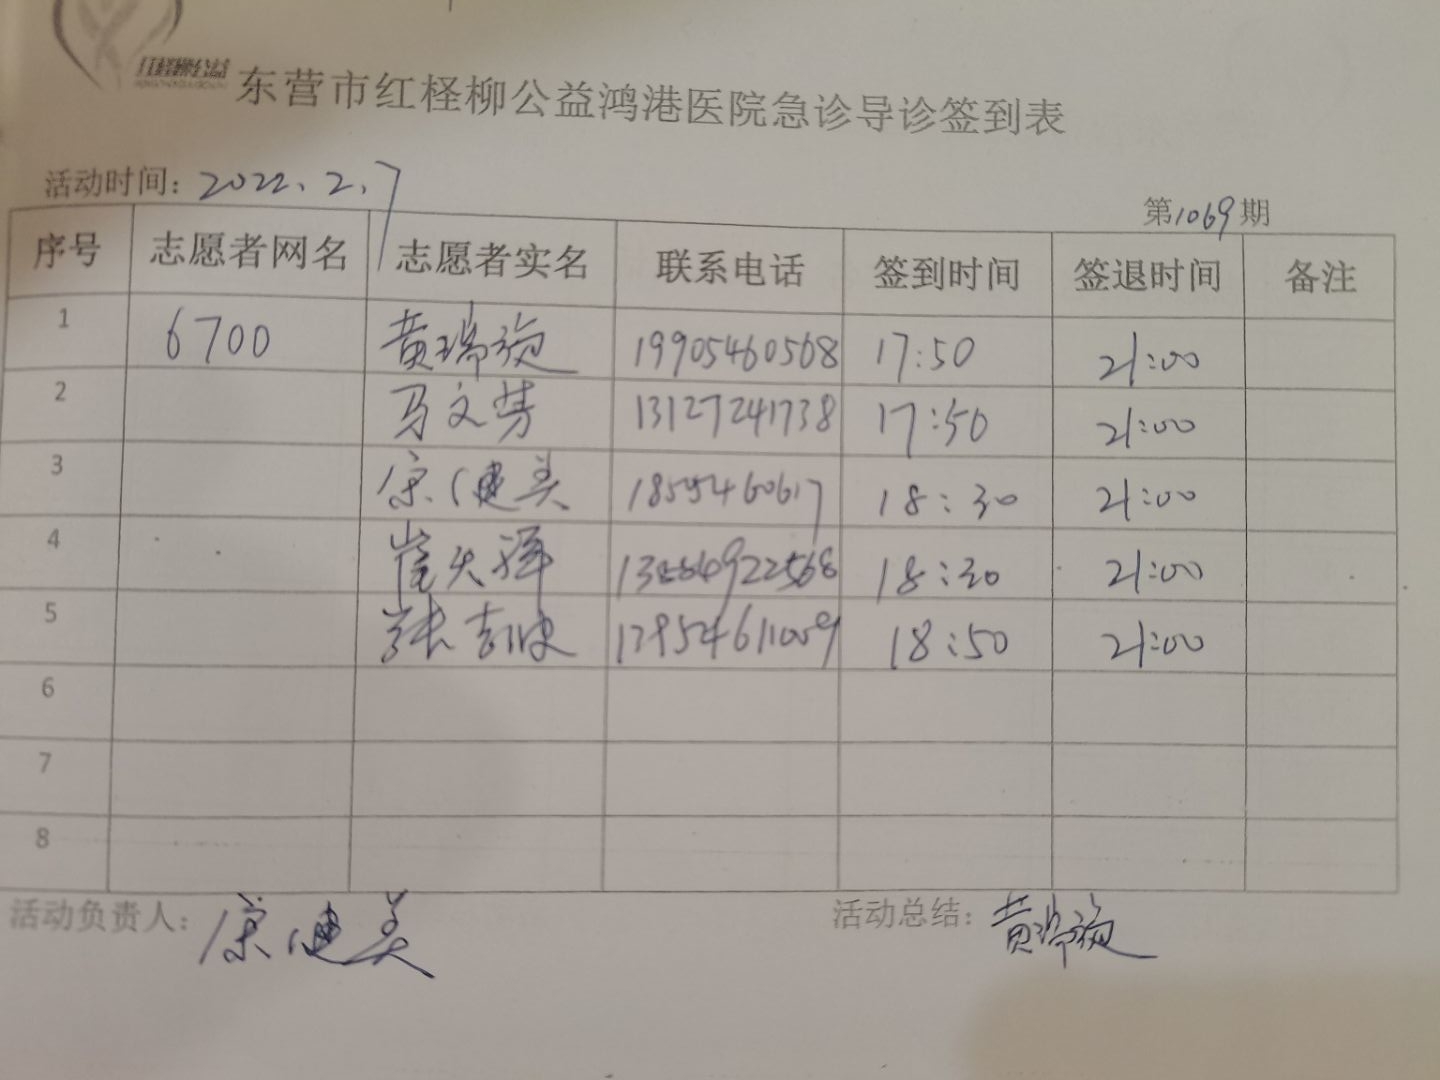 红柽柳公益
东营市红柽柳公益鸿港医院急诊导诊签到表
活动时间：2022、2、7
第1069期
序号 志愿者网名 志愿者实名 联系电话 签到时间 签退时间 备注
1 6700 黄瑞旋 19905460568 17:50 21:00
2 马文芳 13127241738 17:50 21:00
3 康健美 18554460617 18:30 21:00
4 崔天祥 18:30 21:00
5 张吉波 18:50 21:00
6
7
8
活动负责人：康健美
活动总结：黄瑞旋